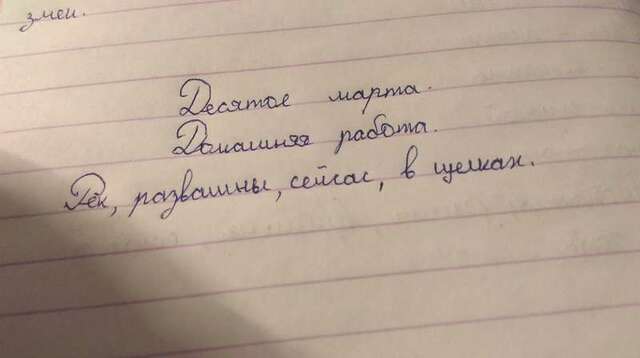 змеи.
Десятое марта.
Домашняя работа.
Рек, развалины, сейчас, в щелках.